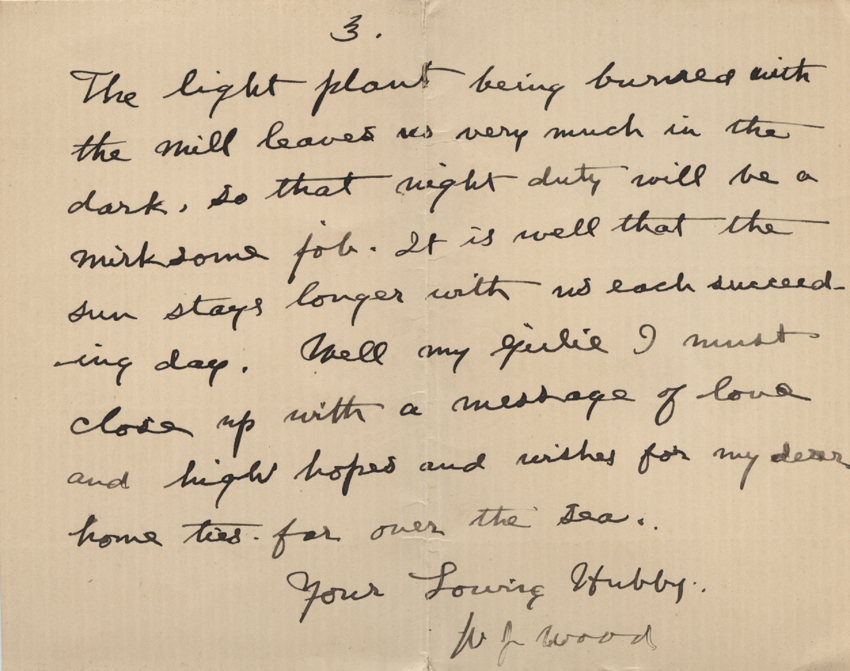 3.
The light plant being burned with
the mill leaves us very much in the
dark, so that night duty will be a
mirksome job. It is well that the
sun stays longer with us each succeed-
-ing day. Well my Girlie I must
close up with a message of love
and high hopes and wishes for my dear
home ties far over the sea..
Your Loving Hubby.
W J Wood